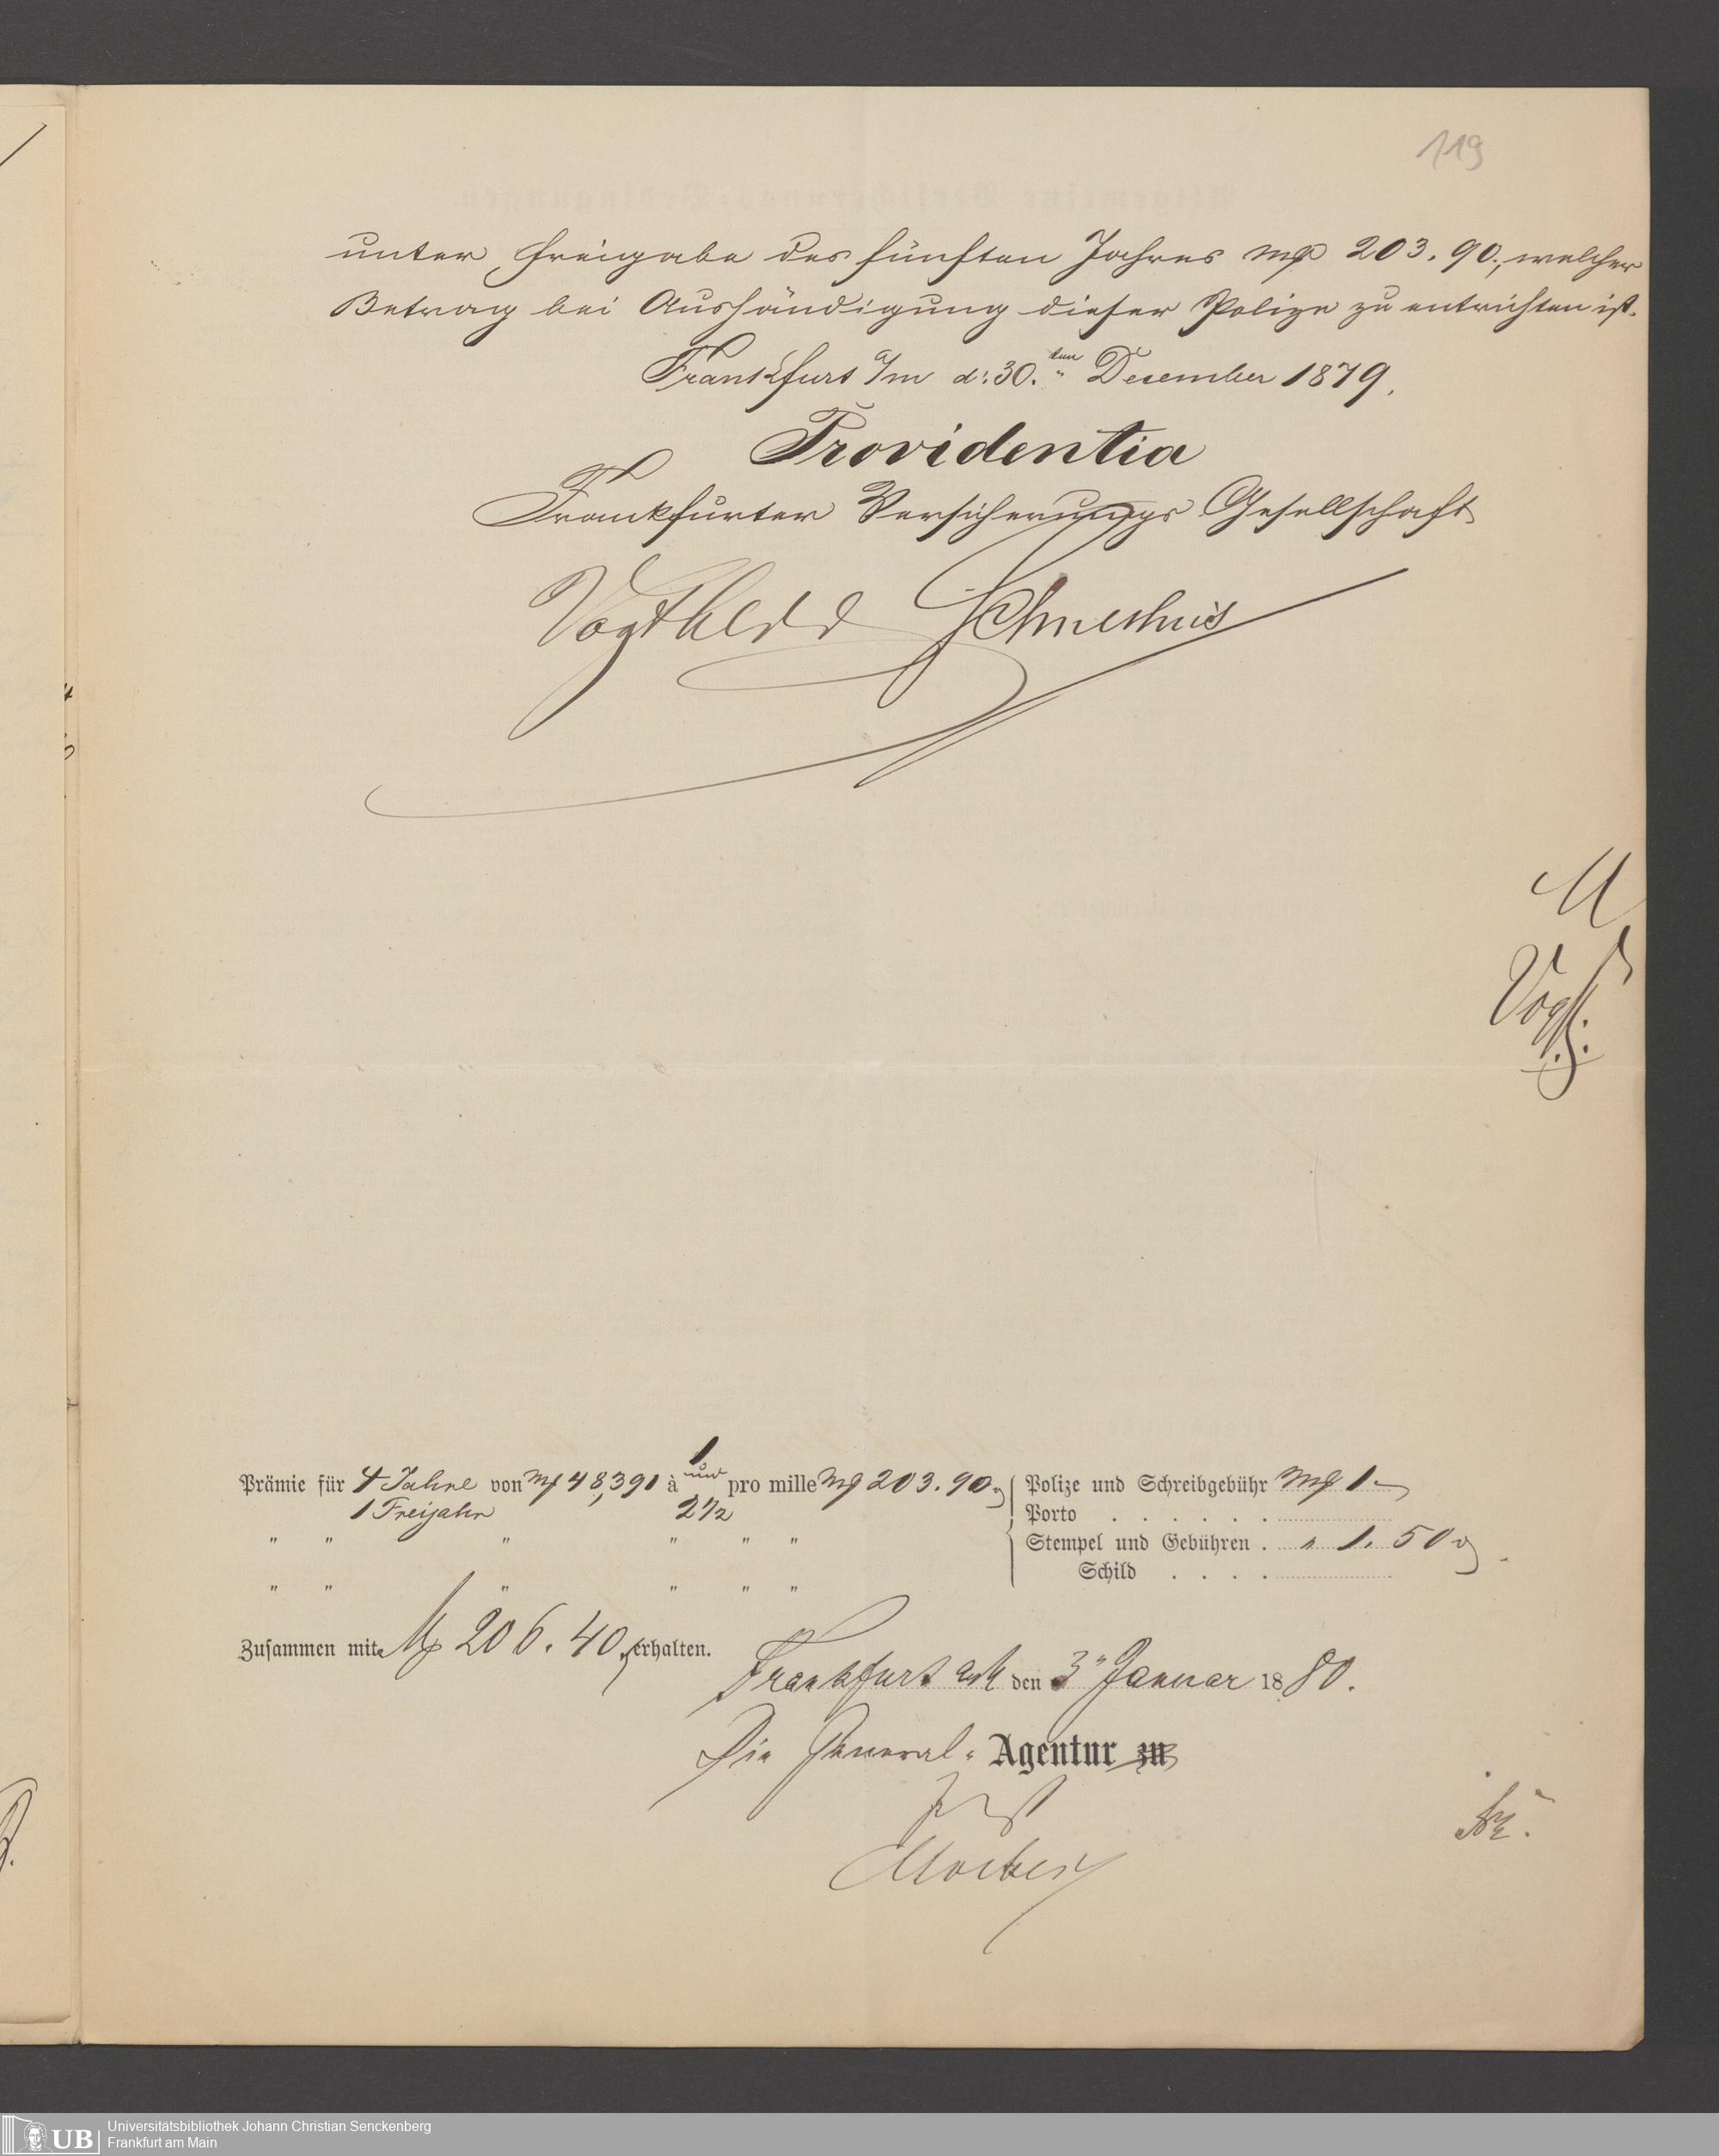 119
unter Freigabe des fünften Jahres M 203.90., welcher
Betrag bei Aushändigung dieser Polize zu entrichten ist.
Frankfurt a/m d: 30.ten December 1879.
Providentia
Frankfurter Versicherungs Gesellschaft
Prämie für 4 Jahre von M 48,391 à 1 und pro mille M 203.90
1 Freijahr 2 1/2
" " " " " "
" " " " " "
Polize und Schreibgebühr M 1.-
Porto . . . . . .
Stempel und Gebühren . " 1.50
Schild . . . .
Zusammen mit M 206.40 erhalten.
Frankfurt a/M den 3" Januar 1880.
Die General-Agentur zu
UB
Universitätsbibliothek Johann Christian Senckenberg
Frankfurt am Main